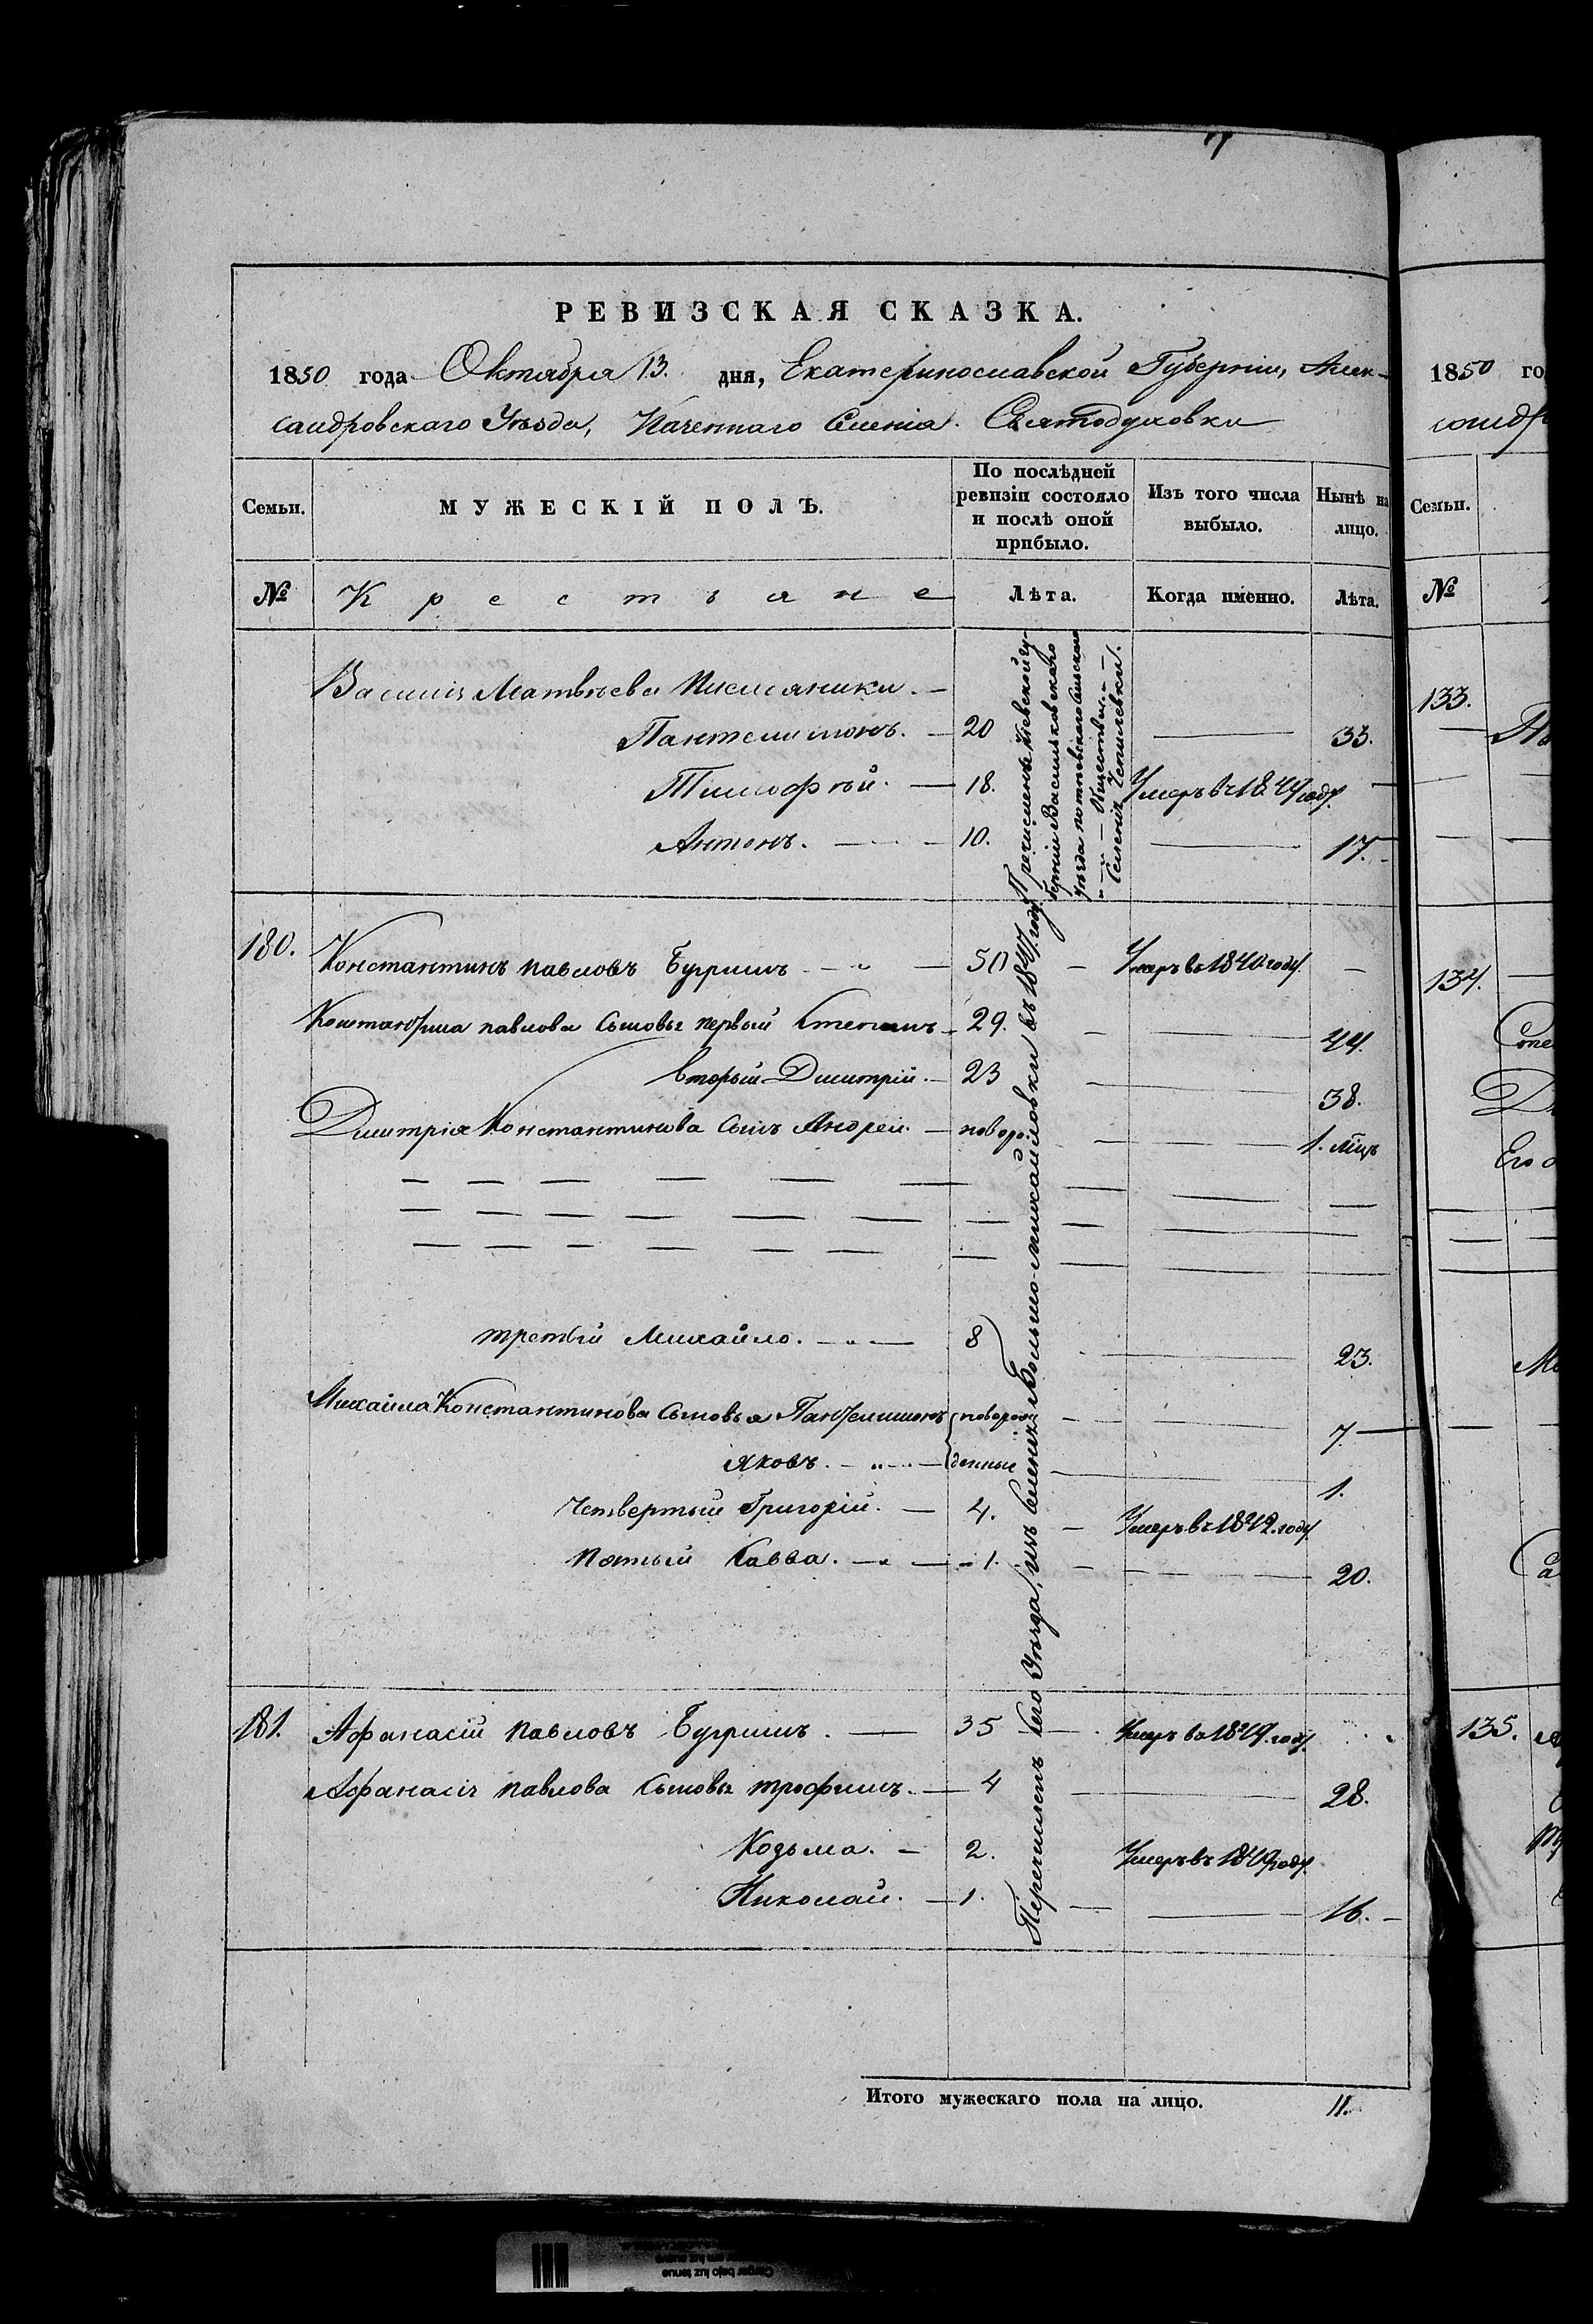 РЕВИЗСКАЯ СКАЗКА.
1850 года Октября 13. дня, Екатеринославской Губерніи, Алек-
сандровскаго Уѣзда, Казеннаго Селенія. Святодуховки
Семьи.
МУЖЕСКІЙ ПОЛЪ.
По послѣдней ревизіи состояло и послѣ оной прибыло.
Изъ того числа выбыло.
Нынѣ на лицо.
№ Крестьяне Лѣта. Когда именно. Лѣта.
Василія Матвѣева
Пантелимонъ. — 20 — 33.
Тимофѣй. — 18. Умеръ въ 1849 году. —
Антонъ. — 10. — 17.
Перечислены Кіевской гу-
берніи Васильковскаго
уѣзда
Общества
Селенія
180. Константинъ Павловъ — 50 — Умеръ въ 1840 году. —
Константина Павлова сыновья первый Степанъ — 29. — 44.
вторый Димитрій. — 23 — 38.
Димитрія Константинова сынъ Андрей. — новоро. — 1. мѣцъ
третій Михайло. — 8 — 23.
Михайла Константинова сыновья Пантелимонъ новорож — 7.
Яковъ. — денные — 1.
Четвертый Григорій. — 4. — Умеръ въ 1842 году
Пятый Савва. — 1. — 20.
181. Афанасій Павловъ — 35 — Умеръ въ 1849 году.
Афанасія Павлова сыновья Трофимъ. — 4 — 28.
Козьма. — 2. Умеръ въ 1849 году.
Николай. — 1. — 16.
Перечисленъ сего Уѣзда, изъ селенія Больше-Михайловки въ 1847 году
Итого мужескаго пола на лицо. 11.
1850 го
Семьи.
№
133.
134.
Его
135.